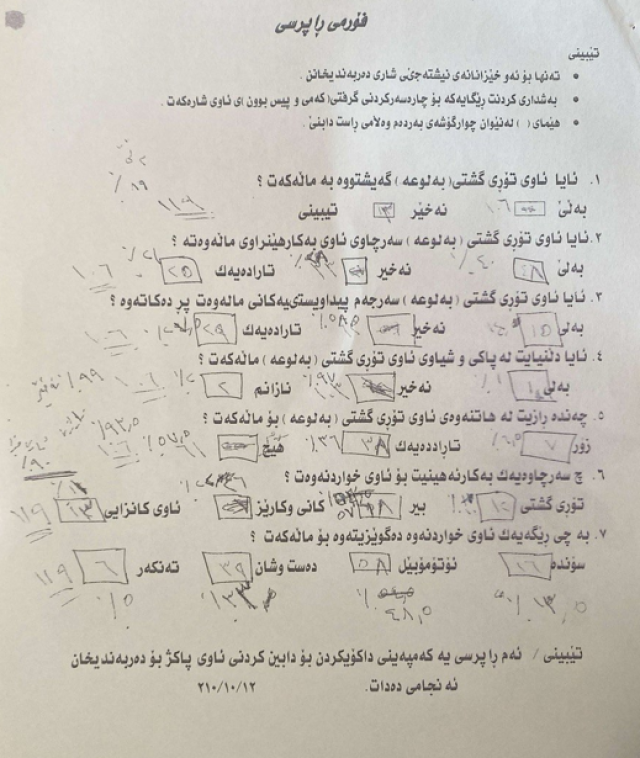 فۆرمی ڕاپرسی
تێبینی
• تەنها بۆ ئەو خێزانانەی نیشتەجێی شاری دەربەندیخانن .
• بەشداری کردنت ڕێگایەکە بۆ چارەسەرکردنی گرفتی( کەمی و پیس بوون ای ئاوی شارەکەت .
• هێمای ( ) لەنێوان چوارگۆشەی بەردەم وەڵامی ڕاست دابنێ .
١. ئایا ئاوی تۆڕی گشتی( بەلوعە ) گەیشتووە بە ماڵەکەت ؟
بەڵێ ١٠٦ نەخێر ١٣ تیبینی ١١٩
٢.ئایا ئاوی تۆڕی گشتی ( بەلوعە ) سەرچاوی ئاوی بەکارهێنراوی ماڵەوەتە ؟
بەلێ ٤٨ نەخیر تارادەیەك ٢٥ ١٠٦
٣. ئایا ئاوی تۆڕی گشتی ( بەلوعە ) سەرجەم پیداویستیەکانی ماڵەوەت پڕ دەکاتەوە ؟
بەلی ١٥ نەخیر تارادەیەك ٢٩ ١٠٦
٤. ئایا دڵنیایت لە پاکی و شیاوی ئاوی تۆڕی گشتی ( بەلوعە ) ماڵەکەت ؟
بەلی ١ نەخیر نازانم ٢ ١٠٦
٥. چەندە رازیت لە هاتنەوەی ئاوی تۆڕی گشتی ( بەلوعە ) بۆ ماڵەکەت ؟
زۆر ٧ تاراددەیەك ٣٨ هیچ ٦١ ١٠٦
٦. چ سەرچاوەیەك بەکارئەهینیت بۆ ئاوی خواردنەوەت ؟
تۆڕی گشتی بیر کانی وکارێز ئاوی کانزایی ١٣ ١١٩
٧. بە چی ڕێگەیەك ئاوی خواردنەوە دەگوێزیتەوە بۆ ماڵەکەت ؟
سۆندە ١٦ ئۆتۆمۆبێل ٥٨ دەست وشان ٣٩ تەنکەر ٦ ١١٩
١٣,٥ ٤٨,٥ ٣٣ ٪٥
تێبینی / ئەم ڕاپرسی یە کەمپەینی داکۆیکردن بۆ دابین کردنی ئاوی پاکژ بۆ دەربەندیخان
ئە نجامی دەدات. ٢١٠/١٠/١٢